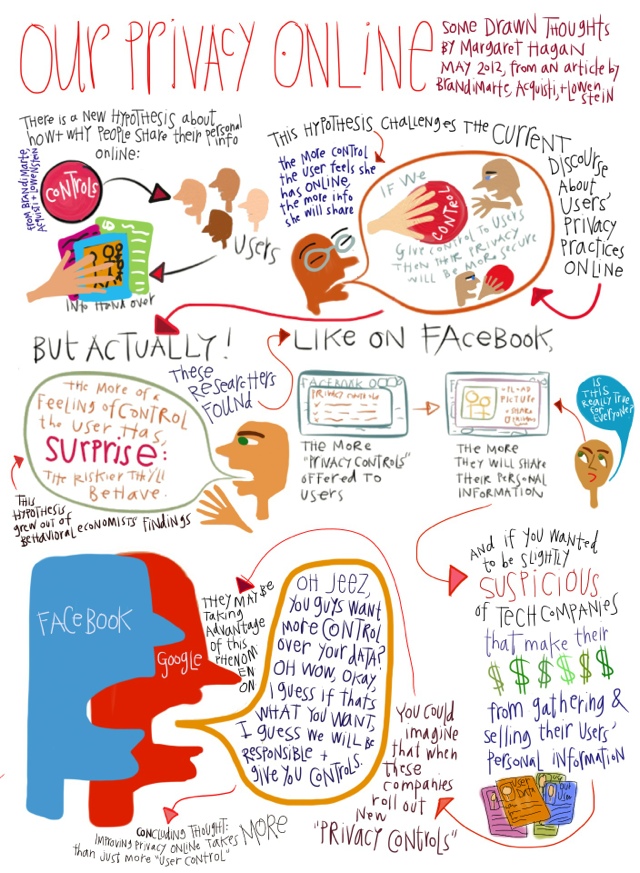 OUR PRIVACY ONLINE
SOME DRAWN THOUGHTS
BY MARGARET HAGAN
MAY 2012, FROM AN ARTICLE BY
BRANDIMARTE, ACQUISTI, + LOWEN
STEIN
THERE IS A NEW HYPOTHESIS ABOUT
HOW + WHY PEOPLE SHARE THEIR PERSONAL
INFO
ONLINE:
FROM BRANDIMARTE,
ACQUISTI + LOWENSTEIN
CONTROLS
USERS
INTO HAND OVER
THIS HYPOTHESIS CHALLENGES THE CURRENT
DISCOURSE
ABOUT
USERS'
PRIVACY
PRACTICES
ONLINE
THE MORE CONTROL
THE USER FEELS SHE
HAS ONLINE,
THE MORE INFO
SHE WILL SHARE
IF WE
CONTROL
GIVE CONTROL TO USERS
THEN THEIR PRIVACY
WILL BE MORE SECURE
BUT ACTUALLY!
THESE
RESEARCHERS
FOUND
THE MORE OF A
FEELING OF CONTROL
THE USER HAS,
SURPRISE:
THE RISKIER THEY'LL
BEHAVE.
THIS
HYPOTHESIS
GREW OUT OF
BEHAVIORAL ECONOMISTS' FINDINGS
LIKE ON FACEBOOK,
FACEBOOK
PRIVACY CONTROLS
THE MORE
"PRIVACY CONTROLS"
OFFERED TO
USERS
PICTURE
THE MORE
THEY WILL SHARE
THEIR PERSONAL
INFORMATION
IS
THIS
REALLY TRUE
FOR
EVERYONE?
AND IF YOU WANTED
TO BE SLIGHTLY
SUSPICIOUS
OF TECH COMPANIES
THAT MAKE THEIR
$ $ $ $ $ $
FROM GATHERING &
SELLING THEIR USERS'
PERSONAL INFORMATION
USER
DATA
YOU COULD
IMAGINE
THAT WHEN
THESE
COMPANIES
ROLL OUT
NEW
"PRIVACY CONTROLS"
THEY MAY BE
TAKING
ADVANTAGE
OF THIS
PHENOM
EN
ON
FACEBOOK
GOOGLE
OH JEEZ,
YOU GUYS WANT
MORE CONTROL
OVER YOUR DATA?
OH WOW, OKAY,
I GUESS IF THAT'S
WHAT YOU WANT,
I GUESS WE WILL BE
RESPONSIBLE +
GIVE YOU CONTROLS.
CONCLUDING THOUGHT:
IMPROVING PRIVACY ONLINE TAKES MORE
THAN JUST MORE "USER CONTROL"